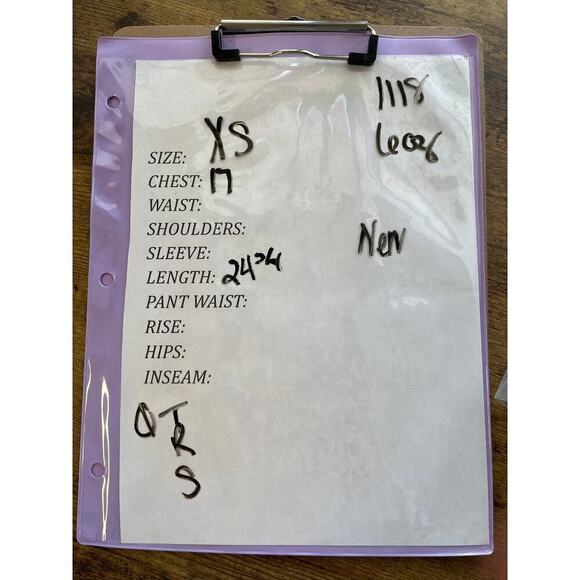 1118
6oz
SIZE: XS
CHEST: 17
WAIST:
SHOULDERS:
New
SLEEVE:
LENGTH: 24
PANT WAIST:
RISE:
HIPS:
INSEAM:
T
R
S